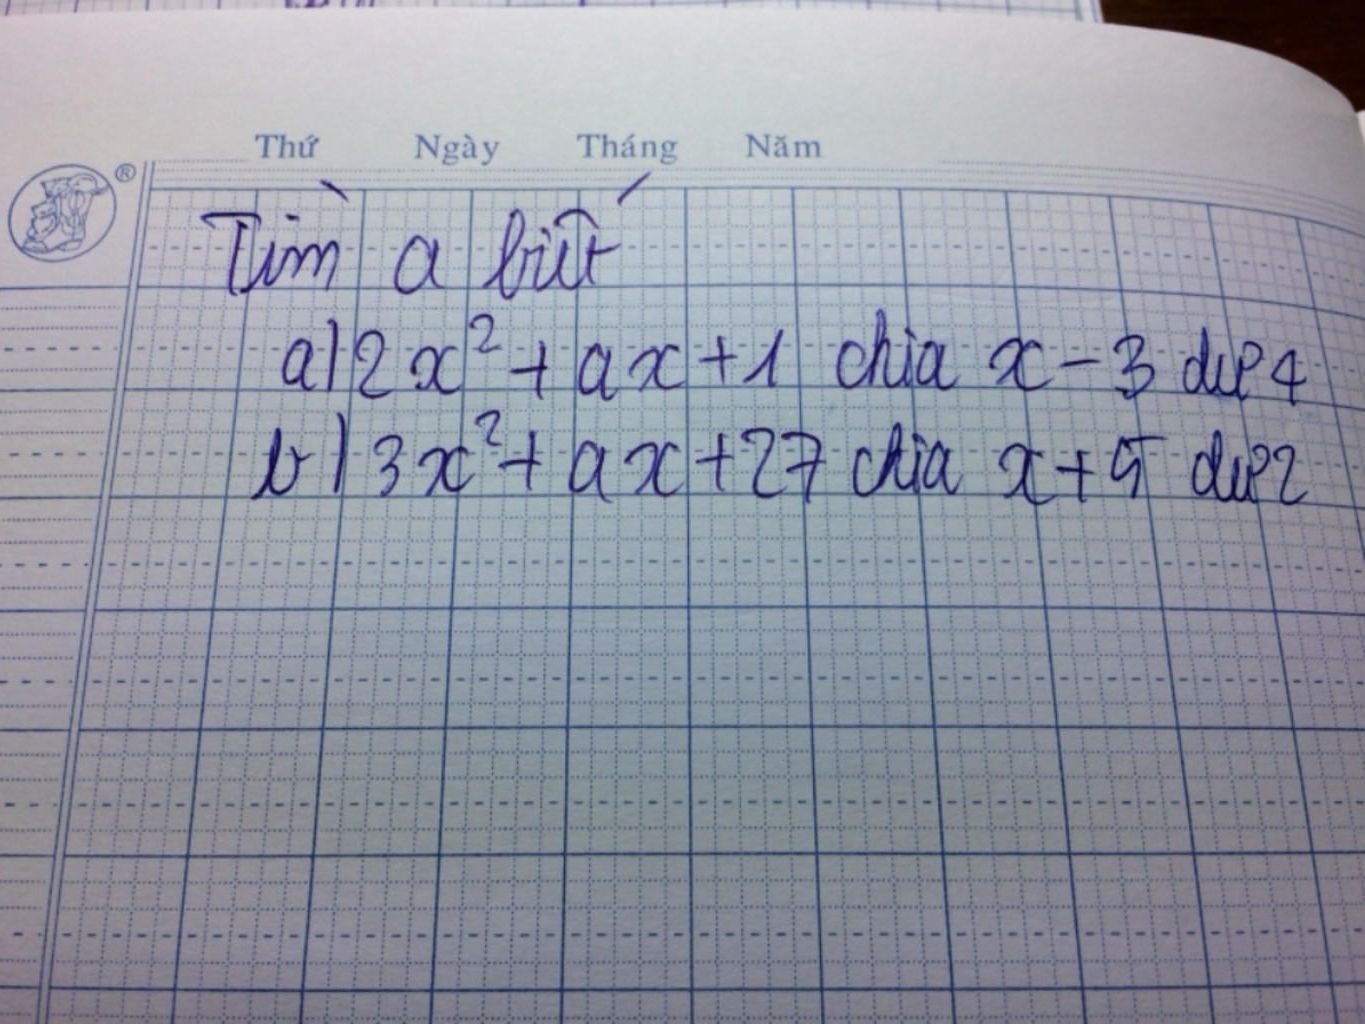 Thứ Ngày Tháng Năm
®
Tìm a biết
a) 2x² + ax + 1 chia x - 3 dư 4
b) 3x² + ax + 27 chia x + 5 dư 2